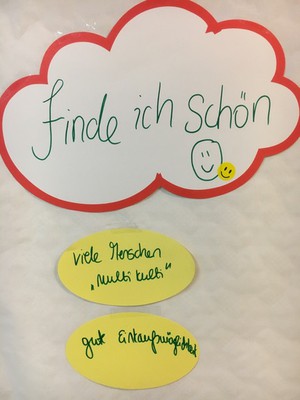 Finde ich schön
viele Menschen
„Multi kulti“
gute Einkaufsmöglichkeit